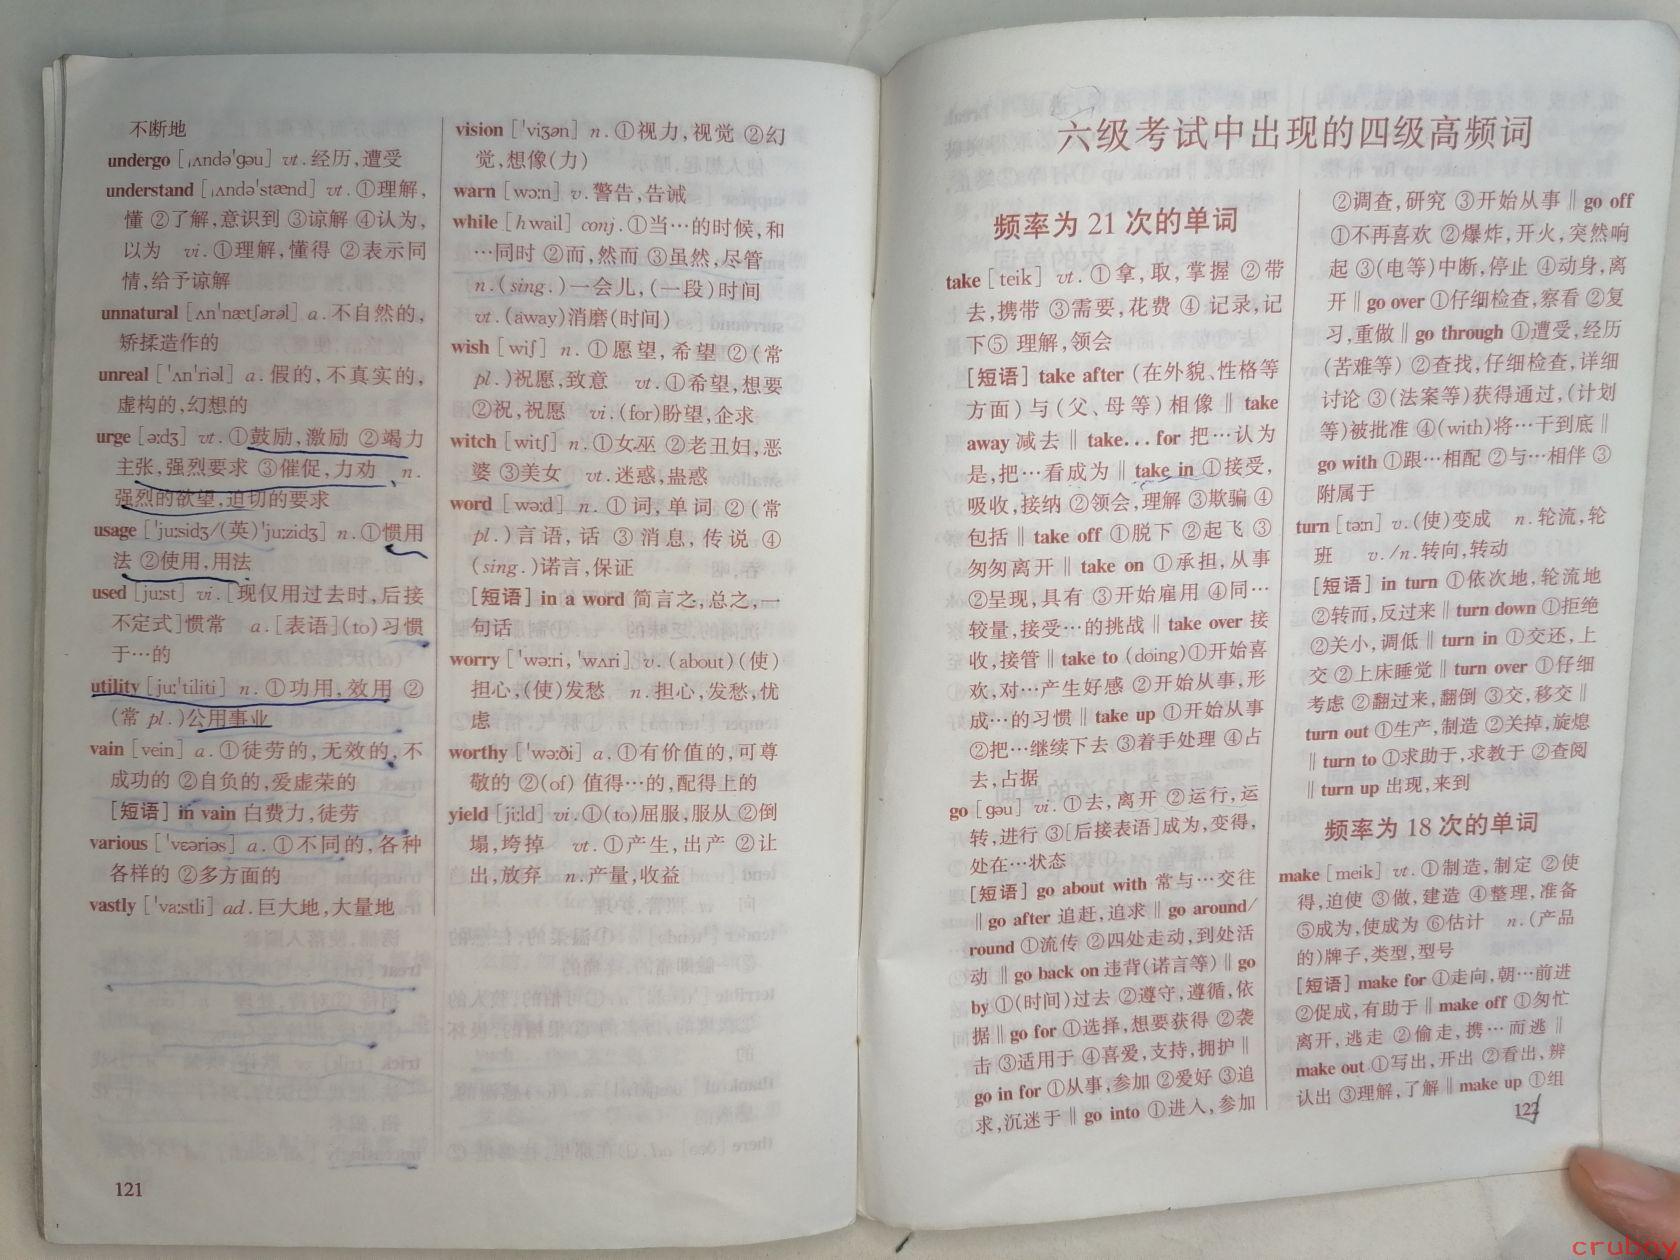 不断地
undergo [ˌʌndə'gəu] vt.经历,遭受
understand [ˌʌndə'stænd] vt.①理解,
懂 ②了解,意识到 ③谅解 ④认为,
以为 vi.①理解,懂得 ②表示同
情,给予谅解
unnatural [ʌn'nætʃərəl] a.不自然的,
矫揉造作的
unreal ['ʌn'riəl] a.假的,不真实的,
虚构的,幻想的
urge [ə:dʒ] vt.①鼓励,激励 ②竭力
主张,强烈要求 ③催促,力劝 n.
强烈的欲望,迫切的要求
usage ['ju:sidʒ/(英)'ju:zidʒ] n.①惯用
法 ②使用,用法
used [ju:st] vi.[现仅用过去时,后接
不定式]惯常 a.[表语](to)习惯
于…的
utility [ju:'tiliti] n.①功用,效用 ②
(常 pl.)公用事业
vain [vein] a.①徒劳的,无效的,不
成功的 ②自负的,爱虚荣的
[短语] in vain 白费力,徒劳
various ['vɛəriəs] a.①不同的,各种
各样的 ②多方面的
vastly ['va:stli] ad.巨大地,大量地
121
vision ['viʒən] n.①视力,视觉 ②幻
觉,想像(力)
warn [wɔ:n] v.警告,告诫
while [hwail] conj.①当…的时候,和
…同时 ②而,然而 ③虽然,尽管
n.(sing.)一会儿,(一段)时间
vt.(away)消磨(时间)
wish [wiʃ] n.①愿望,希望 ②(常
pl.)祝愿,致意 vt.①希望,想要
②祝,祝愿 vi.(for)盼望,企求
witch [witʃ] n.①女巫 ②老丑妇,恶
婆 ③美女 vt.迷惑,蛊惑
word [wə:d] n.①词,单词 ②(常
pl.)言语,话 ③消息,传说 ④
(sing.)诺言,保证
[短语] in a word 简言之,总之,一
句话
worry ['wə:ri,'wʌri] v.(about)(使)
担心,(使)发愁 n.担心,发愁,忧
虑
worthy ['wə:ði] a.①有价值的,可尊
敬的 ②(of) 值得…的,配得上的
yield [ji:ld] vi.①(to)屈服,服从 ②倒
塌,垮掉 vt.①产生,出产 ②让
出,放弃 n.产量,收益
六级考试中出现的四级高频词
频率为 21 次的单词
take [teik] vt.①拿,取,掌握 ②带
去,携带 ③需要,花费 ④ 记录,记
下⑤ 理解,领会
[短语] take after (在外貌、性格等
方面)与(父、母等)相像 ‖ take
away 减去 ‖ take...for 把…认为
是,把…看成为 ‖ take in ①接受,
吸收,接纳 ②领会,理解 ③欺骗 ④
包括 ‖ take off ①脱下 ②起飞 ③
匆匆离开 ‖ take on ①承担,从事
②呈现,具有 ③开始雇用 ④同…
较量,接受…的挑战 ‖ take over 接
收,接管 ‖ take to (doing)①开始喜
欢,对…产生好感 ②开始从事,形
成…的习惯 ‖ take up ①开始从事
②把…继续下去 ③着手处理 ④占
去,占据
go [gəu] vi.①去,离开 ②运行,运
转,进行 ③[后接表语]成为,变得,
处在…状态
[短语] go about with 常与…交往
‖ go after 追赶,追求 ‖ go around/
round ①流传 ②四处走动,到处活
动 ‖ go back on 违背(诺言等) ‖ go
by ①(时间)过去 ②遵守,遵循,依
据 ‖ go for ①选择,想要获得 ②袭
击 ③适用于 ④喜爱,支持,拥护 ‖
go in for ①从事,参加 ②爱好 ③追
求,沉迷于 ‖ go into ①进入,参加
②调查,研究 ③开始从事 ‖ go off
①不再喜欢 ②爆炸,开火,突然响
起 ③(电等)中断,停止 ④动身,离
开 ‖ go over ①仔细检查,察看 ②复
习,重做 ‖ go through ①遭受,经历
(苦难等) ②查找,仔细检查,详细
讨论 ③(法案等)获得通过,(计划
等)被批准 ④(with)将…干到底 ‖
go with ①跟…相配 ②与…相伴 ③
附属于
turn [tə:n] v.(使)变成 n.轮流,轮
班 v./n.转向,转动
[短语] in turn ①依次地,轮流地
②转而,反过来 ‖ turn down ①拒绝
②关小,调低 ‖ turn in ①交还,上
交 ②上床睡觉 ‖ turn over ①仔细
考虑 ②翻过来,翻倒 ③交,移交 ‖
turn out ①生产,制造 ②关掉,旋熄
‖ turn to ①求助于,求教于 ②查阅
‖ turn up 出现,来到
频率为 18 次的单词
make [meik] vt.①制造,制定 ②使
得,迫使 ③做,建造 ④整理,准备
⑤成为,使成为 ⑥估计 n.(产品
的)牌子,类型,型号
[短语] make for ①走向,朝…前进
②促成,有助于 ‖ make off ①匆忙
离开,逃走 ②偷走,携…而逃 ‖
make out ①写出,开出 ②看出,辨
认出 ③理解,了解 ‖ make up ①组
122
cruboy